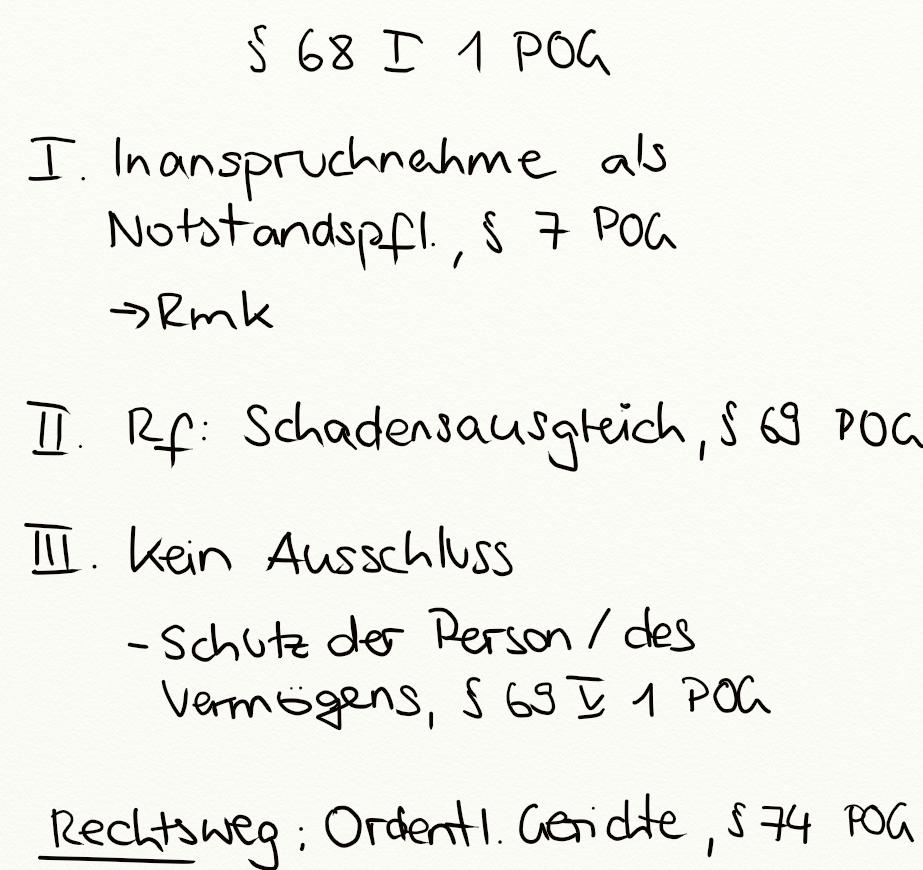 § 68 I 1 POG
I. Inanspruchnahme als
Notstandspfl., § 7 POG
→ Rmk
II. Rf: Schadensausgleich, § 69 POG
III. Kein Ausschluss
- Schutz der Person / des
Vermögens, § 69 V 1 POG
Rechtsweg: Ordentl. Gerichte, § 74 POG